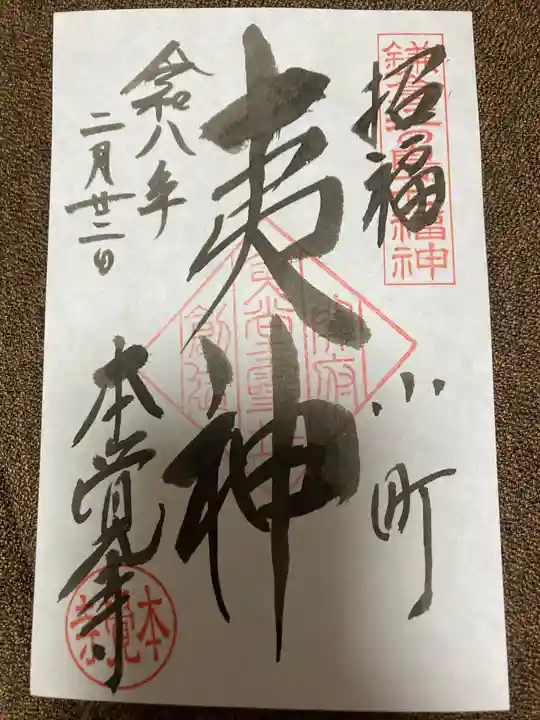 鎌倉江の島七福神
招福
小町
夷神
令和八年
二月廿二日
本覚寺
本覺寺